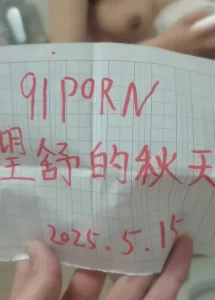 91PORN
望舒的秋天
2025.5.15